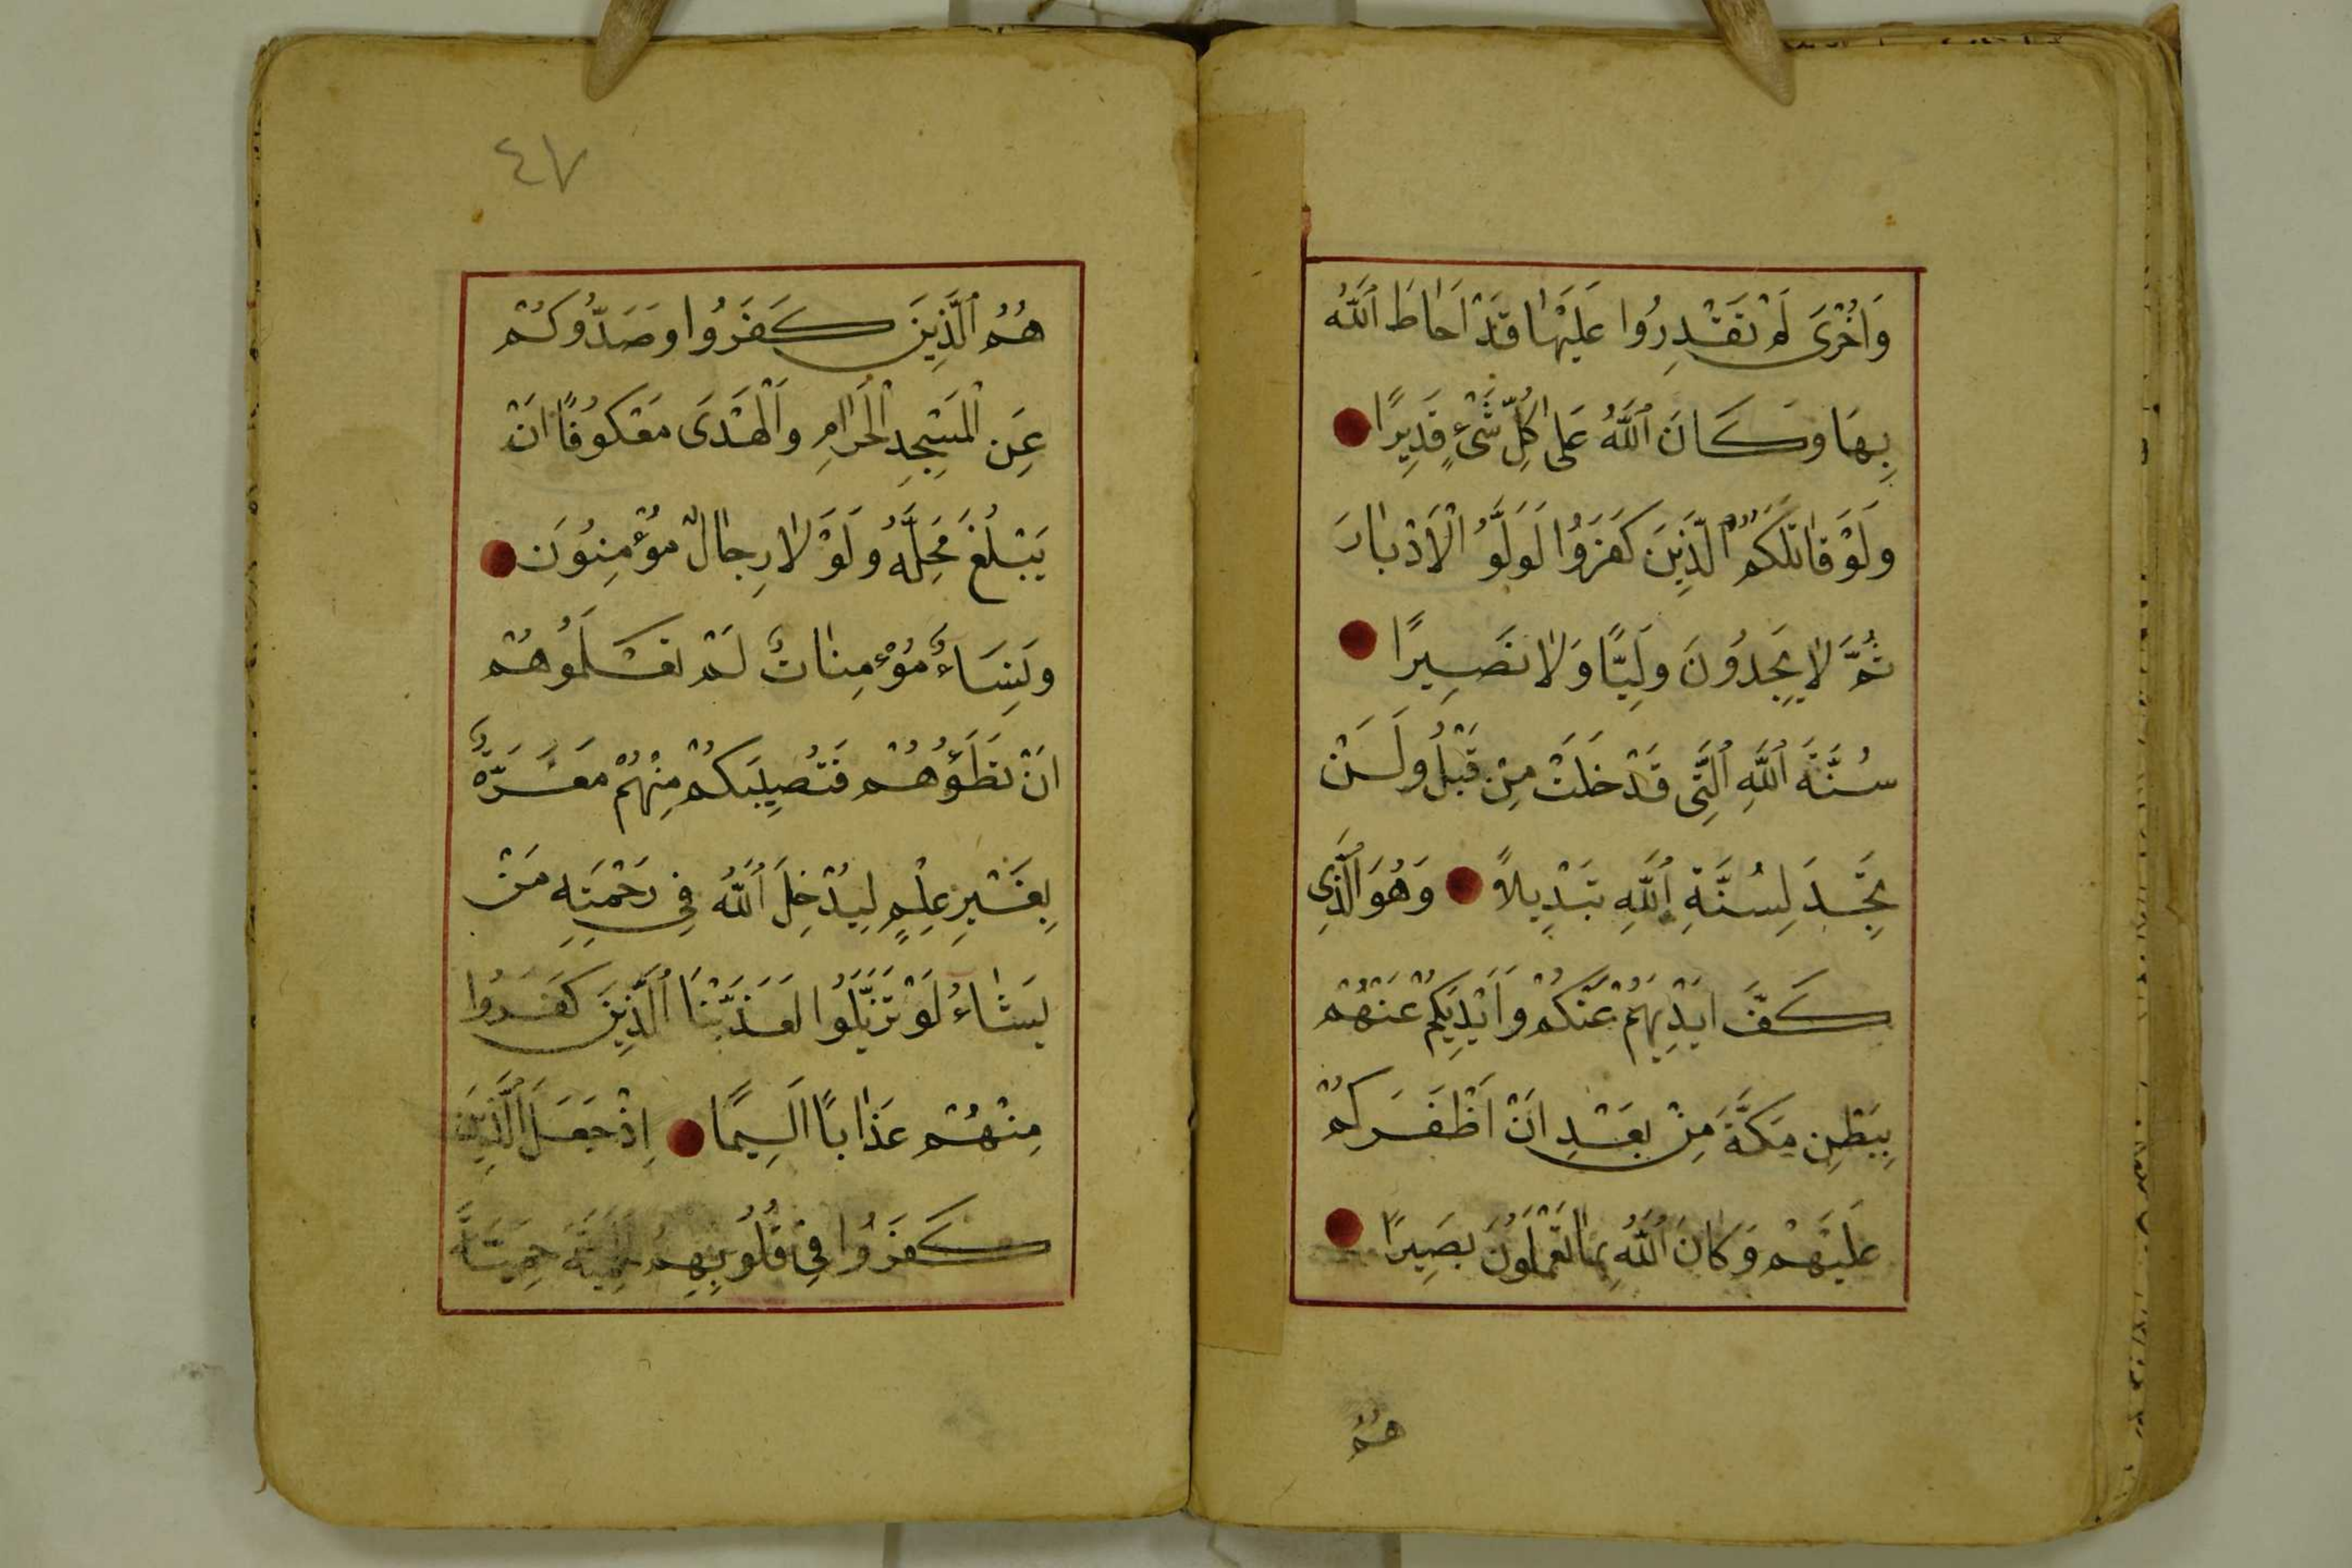 وَاُخْرٰى لَمْ تَقْدِرُوا عَلَيْهَا قَدْ اَحَاطَ ٱللّٰهُ
بِهَا وَكَانَ ٱللّٰهُ عَلٰى كُلِّ شَىْءٍ قَدِيرًا
وَلَوْ قَاتَلَكُمُ الَّذِينَ كَفَرُوا لَوَلَّوُ الْاَدْبَارَ
ثُمَّ لَا يَجِدُونَ وَلِيًّا وَلَا نَصِيرًا
سُنَّةَ ٱللّٰهِ ٱلَّتِى قَدْ خَلَتْ مِنْ قَبْلُ وَلَنْ
تَجِدَ لِسُنَّةِ ٱللّٰهِ تَبْدِيلاً وَهُوَ الَّذِى
كَفَّ اَيْدِيَهُمْ عَنْكُمْ وَاَيْدِيَكُمْ عَنْهُمْ
بِبَطْنِ مَكَّةَ مِنْ بَعْدِ اَنْ اَظْفَرَكُمْ
عَلَيْهِمْ وَكَانَ ٱللّٰهُ بِمَا تَعْمَلُونَ بَصِيرًا
هُمُ
٤٧
هُمُ ٱلَّذِينَ كَفَرُوا وَصَدُّوكُمْ
عَنِ الْمَسْجِدِ الْحَرَامِ وَالْهَدْىَ مَعْكُوفًا اَنْ
يَبْلُغَ مَحِلَّهُ وَلَوْلَا رِجَالٌ مُؤْمِنُونَ
وَنِسَاءٌ مُؤْمِنَاتٌ لَمْ تَعْلَمُوهُمْ
اَنْ تَطَؤُهُمْ فَتُصِيبَكُمْ مِنْهُمْ مَعَرَّةٌ
بِغَيْرِ عِلْمٍ لِيُدْخِلَ ٱللّٰهُ فِى رَحْمَتِهِ مَنْ
يَشَاءُ لَوْ تَزَيَّلُوا لَعَذَّبْنَا ٱلَّذِينَ كَفَرُوا
مِنْهُمْ عَذَابًا اَلِيمًا اِذْ جَعَلَ ٱلَّذِينَ
كَفَرُوا فِى قُلُوبِهِمُ الْحَمِيَّةَ حَمِيَّةَ